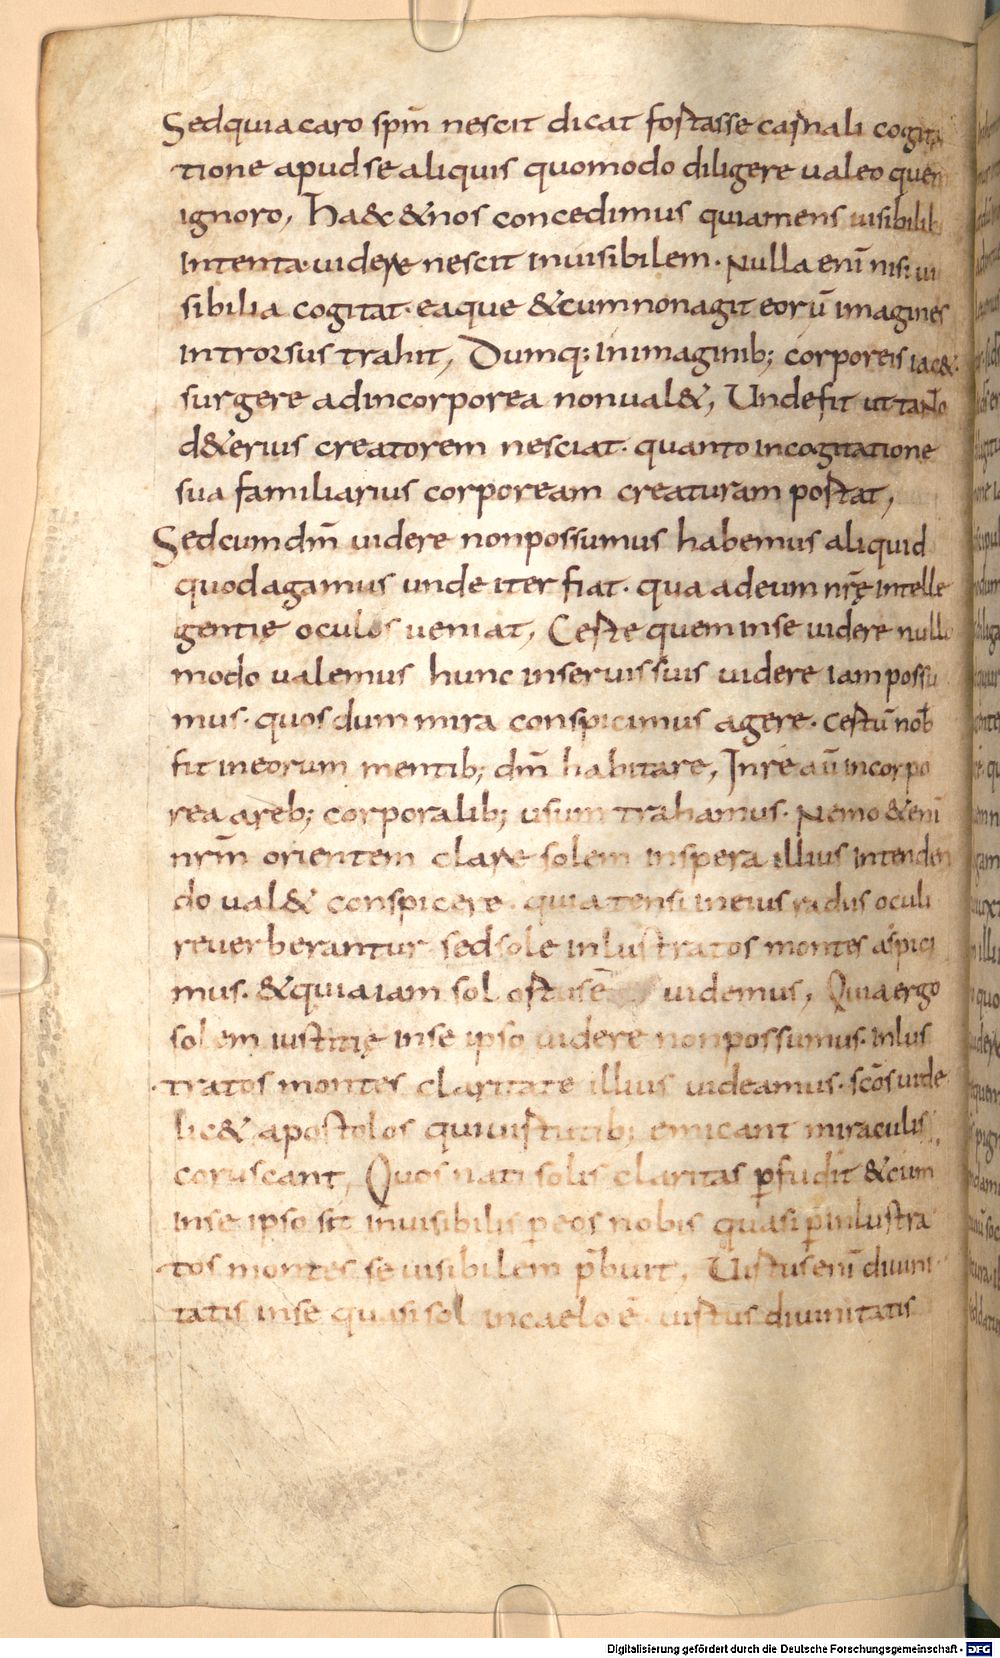 Sedquia caro spm̄ nescit dicat fortasse carnali cogita
tione apud se aliquis quomodo diligere ualeo quem
ignoro, Ha&c &nos concedimus quiamens uisibilib;
intenta uidere nescit inuisibilem. Nulla enī nisi ui
sibilia cogitat. eaque &cum non agit eorū imagines
introrsus trahit, Dumq; inimaginib; corporeis iac&.
surgere adincorporea nonual&, Unde fit ut tanto
d&erius creatorem nesciat. quanto incogitatione
sua familiarius corpoream creaturam portat,
Sedcumdm̄ uidere nonpossumus habemus aliquid
quod agamus unde iter fiat. qua adeum nrę̄ intelle
gentię oculos ueniat, Certe quem inse uidere nullo
modo ualemus hunc inseruis suis uidere iam possu
mus. quos dum mira conspicimus agere. certū nob̄
fit ineorum mentib; dm̄ habitare, Inre aū incorpo
rea areb; corporalib; usum trahamus. Nemo &enī
nrm̄ orientem clare solem inspera illius intenden
do ual& conspicere. quia tensi ineius radus oculi
reuerberantur. sed sole inlustratos montes aspici
mus. &quia iam sol ortus ē uidemus, Quia ergo
solem iustitię inse ipso uidere nonpossumus. inlus
tratos montes claritate illius uideamus. scōs uide
lic& apostolos qui uirtutib; emicant miraculis
coruscant, Quos nati solis claritas p̱fudit &cum
inse ipso sit inuisibilis p̱ eos nobis quasi p̱ inlustra
tos montes se uisibilem p̄buit, Uirtus enī diuini
tatis inse quasi sol incaelo ē. uirtus diuinitatis
Digitalisierung gefördert durch die Deutsche Forschungsgemeinschaft - DFG